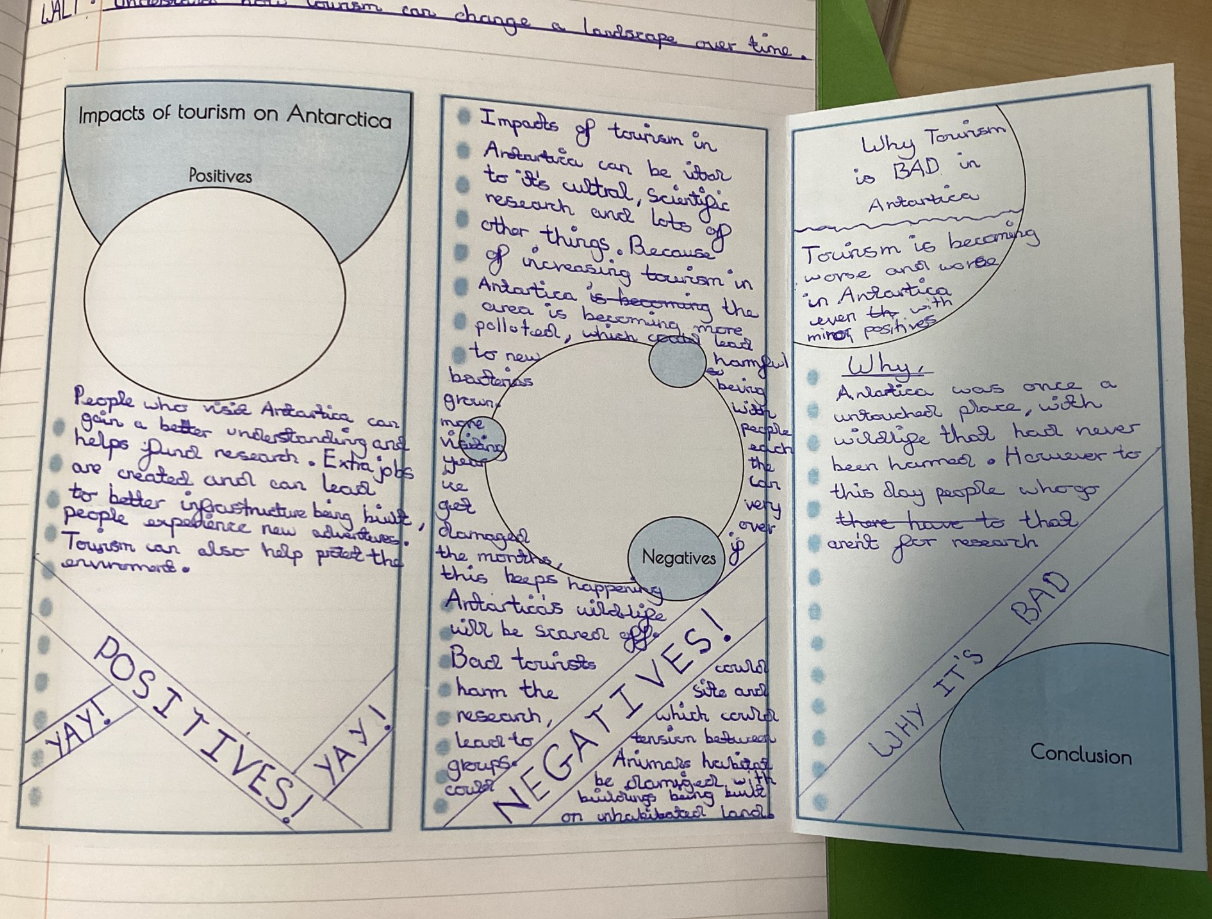 WALT: Understand how tourism can change a landscape over time.
Impacts of tourism on Antarctica
Positives
People who visit Antartica can
gain a better understanding and
helps fund research. Extra jobs
are created and can lead
to better infrastructure being built,
people experience new adventures.
Tourism can also help protect the
enviroment.
POSITIVES!
YAY!
YAY!
Impacts of tourism in
Antartica can be
to it's cultral, Scientific
research and lots of
other things. Because
of increasing tourism in
Antartica is becoming the
area is becoming more
polluted, which could lead
to new harmful
bacterias being
grown. with
more people
visiting each
year the
ice can
get very
damaged over
the months, if
this keeps happening
Antartica's wildlife
will be scared off.
Bad tourists could
ham the site and
research, which could
lead to tension between
groups. Animals habitat
could be damiged with
buildings being built
on inhabitated land.
Negatives
NEGATIVES!
Why Tourism
is BAD in
Antartica
Tourism is becoming
worse and worse
in Antartica
even with
minor positives
Why,
Antartica was once a
untouched place, with
wildlife that had never
been harmed. However to
this day people who go
there have to that
aren't for research
WHY IT'S BAD
Conclusion